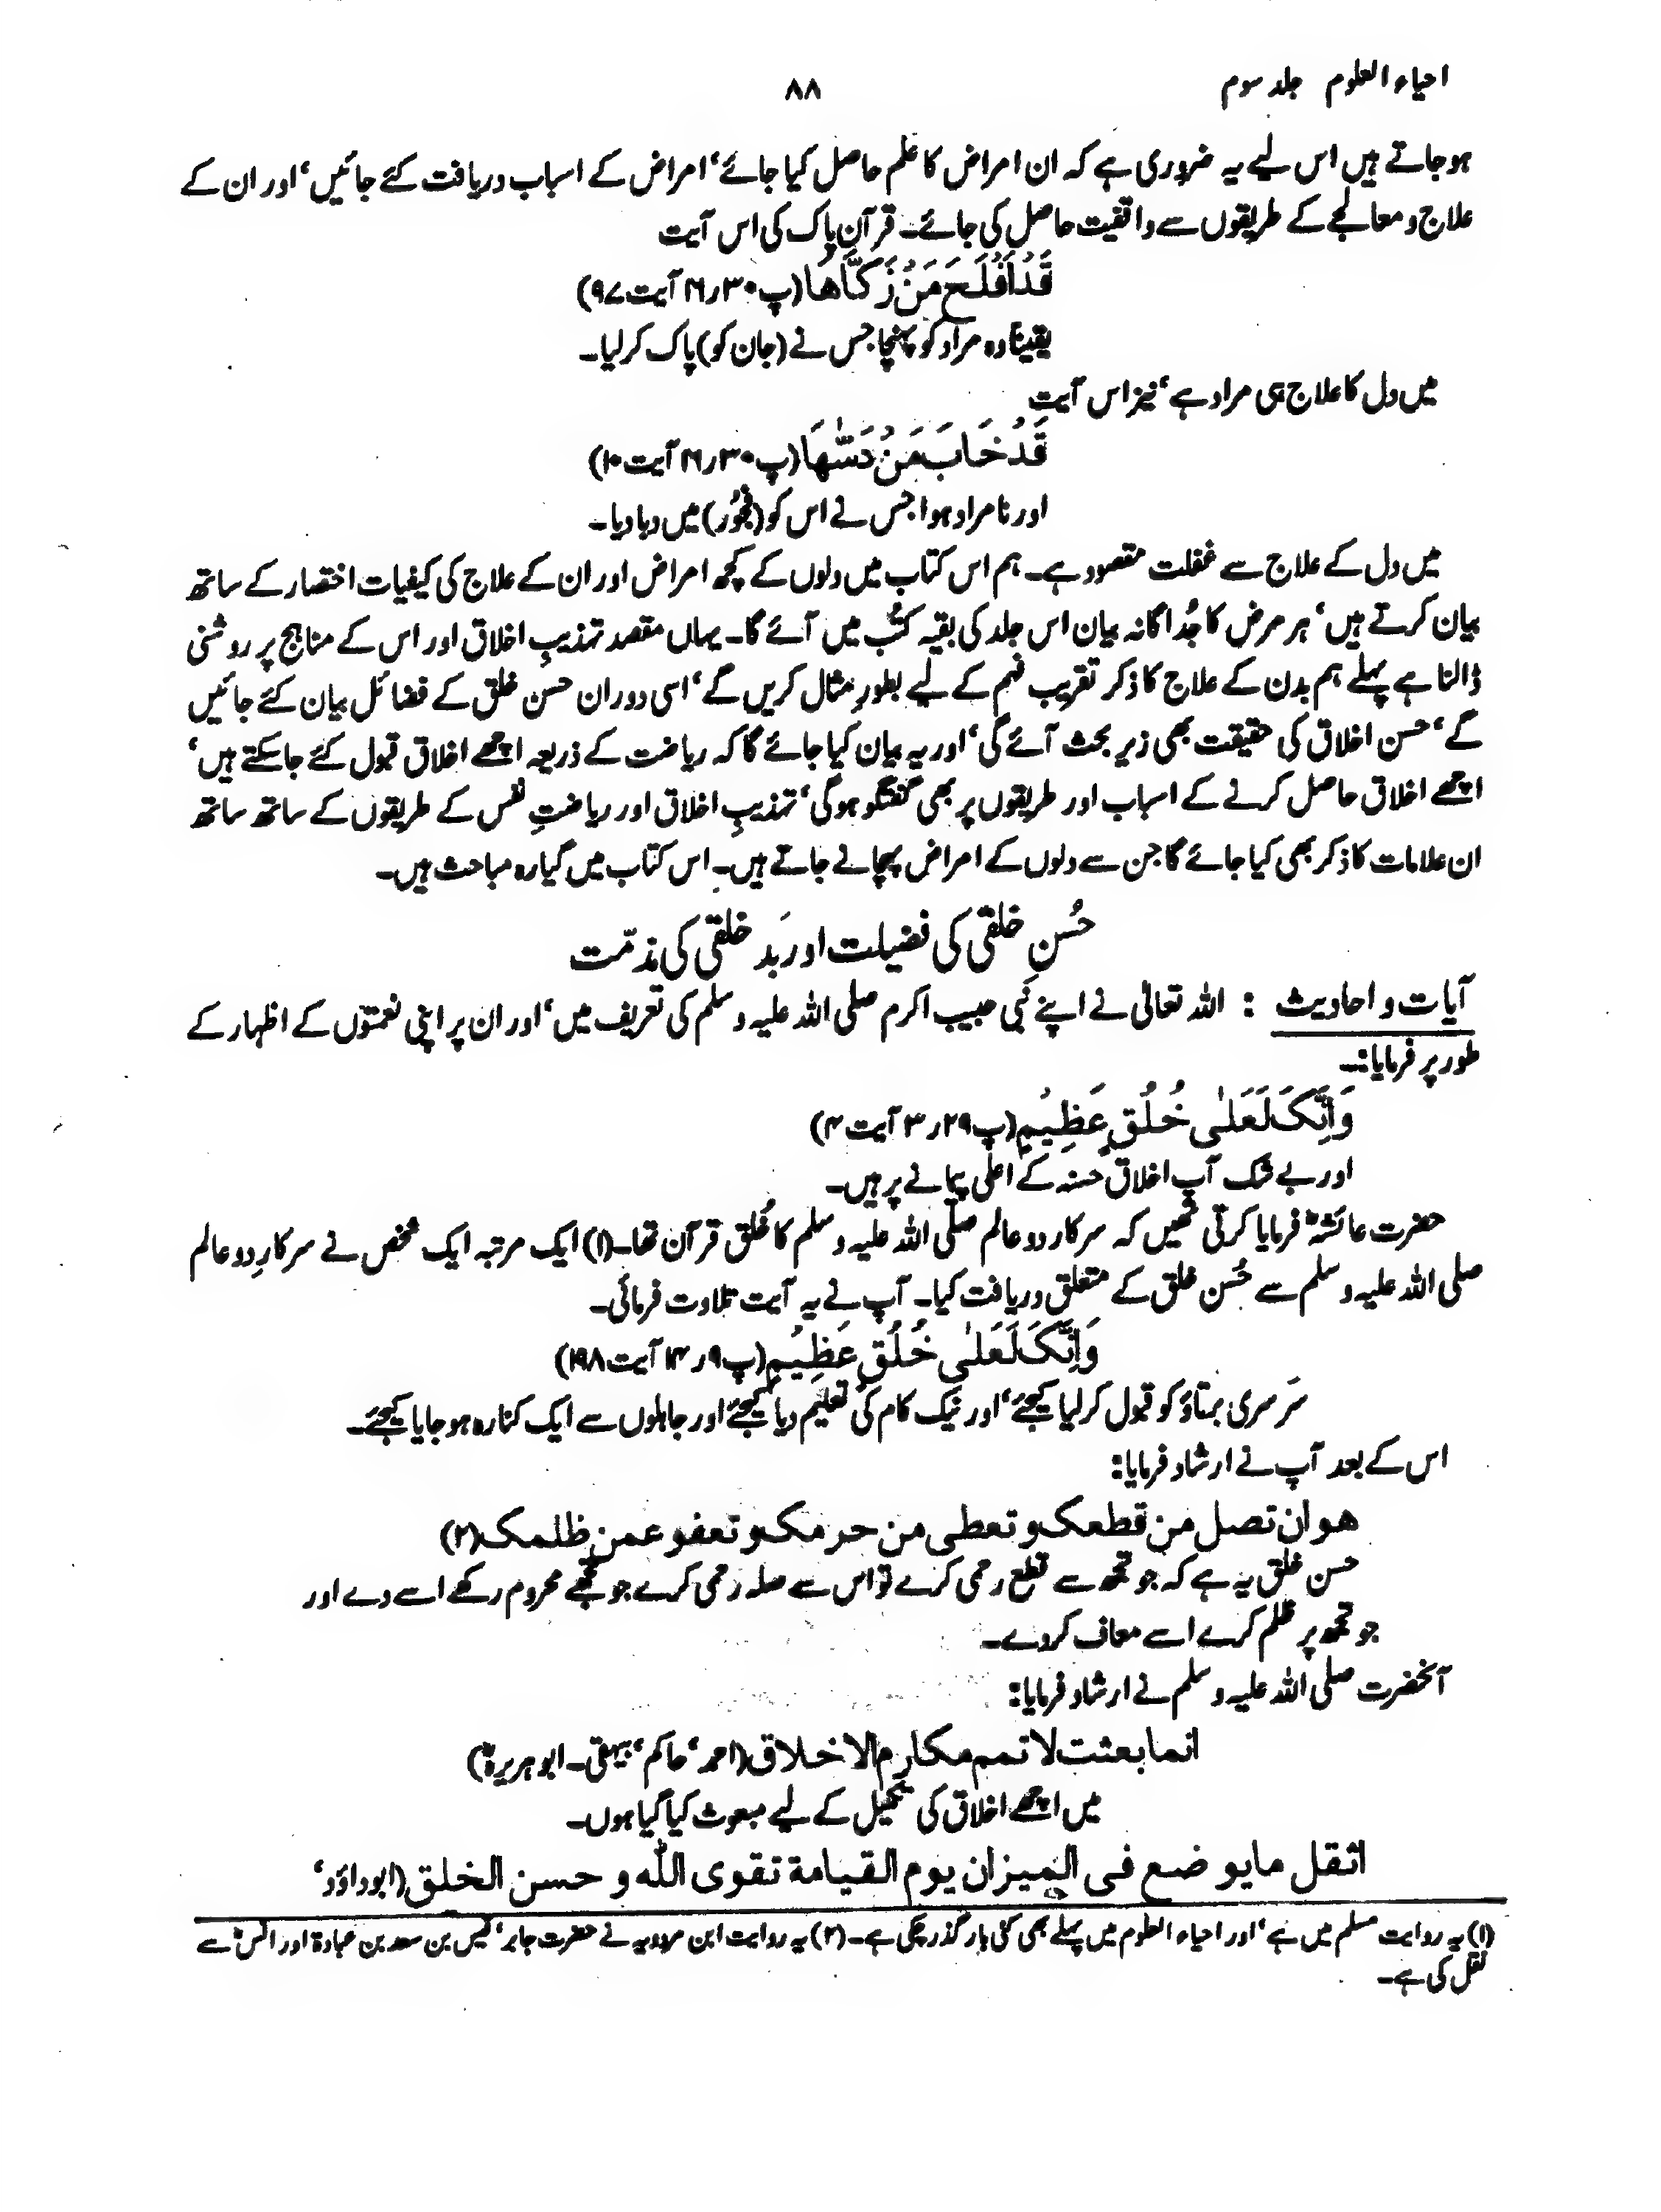 احیاء العلوم جلد سوم
۸۸
ہو جاتے ہیں اس لیے یہ ضروری ہے کہ ان امراض کا علم حاصل کیا جائے‘ امراض کے اسباب دریافت کئے جائیں‘ اور ان کے
علاج و معالجے کے طریقوں سے واقفیت حاصل کی جائے۔ قرآن پاک کی اس آیت
قَدْ اَفْلَحَ مَنْ زَكَّاهَا (پ۳۰ر۱۶ آیت ۹۷)
یقیناً وہ مراد کو پہنچا جس نے (جان کو) پاک کر لیا۔
میں دل کا علاج ہی مراد ہے‘ نیز اس آیت
قَدْ خَابَ مَنْ دَسّٰهَا (پ۳۰ر۱۶ آیت ۱۰)
اور نامراد ہوا جس نے اس کو (فجور) میں دبا دیا۔
میں دل کے علاج سے غفلت مقصود ہے۔ ہم اس کتاب میں دلوں کے کچھ امراض اور ان کے علاج کی کیفیات اختصار کے ساتھ
بیان کرتے ہیں‘ ہر مرض کا جُداگانہ بیان اس جلد کی بقیہ کتُب میں آئے گا۔ یہاں مقصد تہذیبِ اخلاق اور اس کے مناہج پر روشنی
ڈالنا ہے پہلے ہم بدن کے علاج کا ذکر تقریب فہم کے لیے بطورِ مثال کریں گے‘ اسی دوران حسن خلق کے فضائل بیان کئے جائیں
گے‘ حسن اخلاق کی حقیقت بھی زیر بحث آئے گی‘ اور یہ بیان کیا جائے گا کہ ریاضت کے ذریعہ اچھے اخلاق قبول کئے جاسکتے ہیں‘
اچھے اخلاق حاصل کرنے کے اسباب اور طریقوں پر بھی گفتگو ہوگی‘ تہذیبِ اخلاق اور ریاضتِ نفس کے طریقوں کے ساتھ ساتھ
ان علامات کا ذکر بھی کیا جائے گا جن سے دلوں کے امراض پہچانے جاتے ہیں۔ اس کتاب میں گیارہ مباحث ہیں۔
حُسنِ خلقی کی فضیلت اور بَد خلقی کی مذمّت
آیات و احادیث : اللہ تعالیٰ نے اپنے نبی حبیب اکرم صلی اللہ علیہ وسلم کی تعریف میں‘ اور ان پر اپنی نعمتوں کے اظہار کے
طور پر فرمایا:۔
وَاِنَّكَ لَعَلٰى خُلُقٍ عَظِيْمٍ (پ۲۹ر۳ آیت ۴)
اور بے شک آپ اخلاق حسنہ کے اعلیٰ پیمانے پر ہیں۔
حضرت عائشہؓ فرمایا کرتی تھیں کہ سرکار دو عالم صلّی اللہ علیہ وسلم کا خُلق قرآن تھا۔ (۱) ایک مرتبہ ایک شخص نے سرکارِ دو عالم
صلی اللہ علیہ وسلم سے حُسن خلق کے متعلق دریافت کیا۔ آپ نے یہ آیت تلاوت فرمائی۔
وَاِنَّكَ لَعَلٰى خُلُقٍ عَظِيْمٍ (پ۹ر۱۴ آیت ۱۹۸)
سَرسری برتاؤ کو قبول کر لیا کیجئے‘ اور نیک کام کی تعلیم دیا کیجئے اور جاہلوں سے ایک کنارہ ہو جایا کیجئے۔
اس کے بعد آپ نے ارشاد فرمایا:
هو ان تصل من قطعک و تعطی من حرمک و تعفو عمن ظلمک (۲)
حسن خلق یہ ہے کہ جو تجھ سے قطع رحمی کرے تو اس سے صلہ رحمی کرے جو تجھے محروم رکھے اسے دے اور
جو تجھ پر ظلم کرے اسے معاف کردے۔
آنحضرت صلی اللہ علیہ وسلم نے ارشاد فرمایا:
انما بعثت لاتمم مکارم الاخلاق (احمد‘ حاکم‘ بیہقی۔ ابو ہریرۃؓ)
میں اچھے اخلاق کی تکمیل کے لیے مبعوث کیا گیا ہوں۔
اثقل ما یوضع فی المیزان یوم القیامة تقوی اللّٰه و حسن الخلق (ابوداؤد‘
(۱) یہ روایت مسلم میں ہے‘ اور احیاء العلوم میں پہلے بھی کئی بار گذر چکی ہے۔ (۲) یہ روایت ابن مردویہ نے حضرت جابر‘ قیس بن سعد بن عبادۃ اور انسؓ سے
نقل کی ہے۔